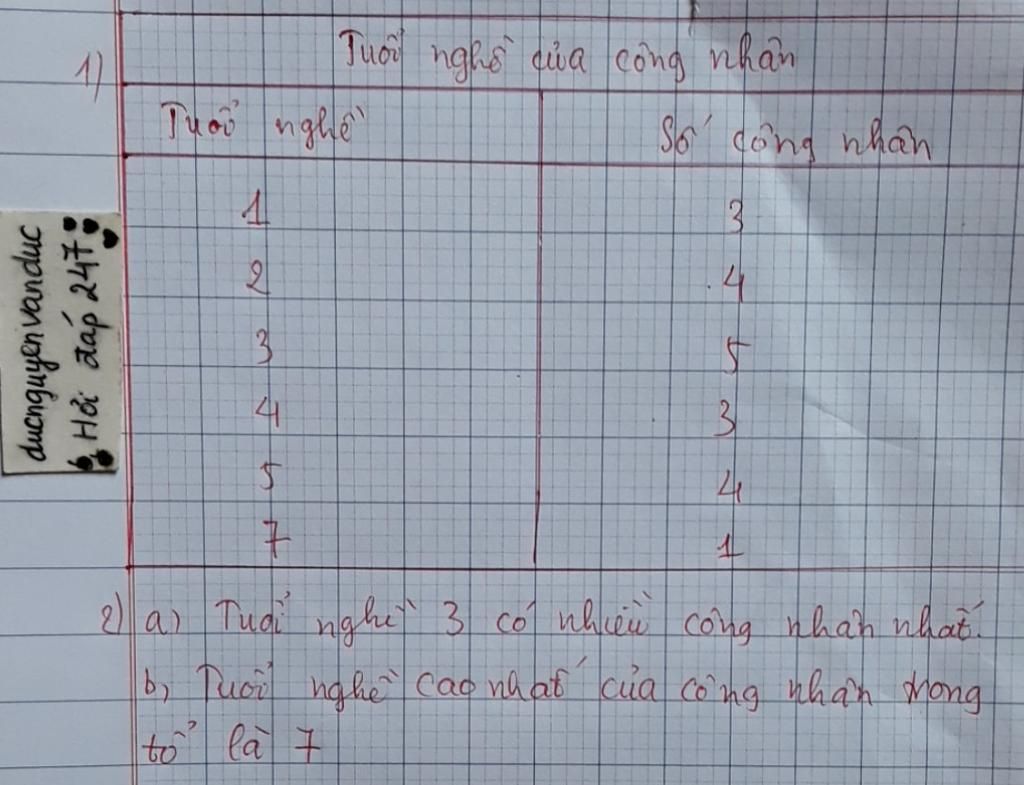 1) Tuổi nghề của công nhân
Tuổi nghề Số công nhân
1 3
2 4
3 5
4 3
5 4
7 1
2) a) Tuổi nghề 3 có nhiều công nhân nhất.
b) Tuổi nghề cao nhất của công nhân trong
tổ là 7
ducnguyenvanduc
Hỏi đáp 247